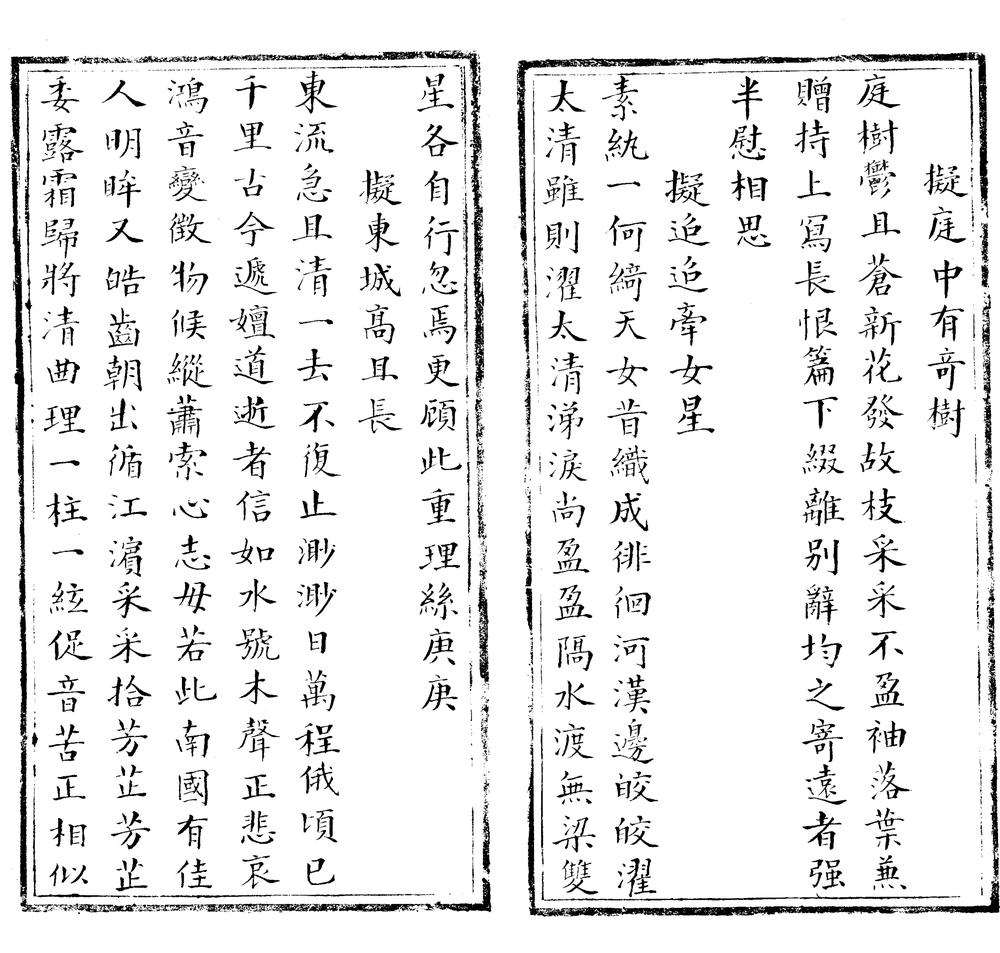 擬庭中有竒樹
庭樹鬱且蒼新花發故枝采采不盈袖落葉兼
贈持上寫長恨篇下綴離别辭均之寄遠者强
半慰相思
擬迢迢牽女星
素紈一何綺天女昔織成徘徊河漢邊皎皎濯
太清雖則濯太清涕淚尚盈盈隔水渡無梁雙
星各自行忽焉更顧此重理絲庚庚
擬東城高且長
東流急且清一去不復止渺渺日萬程俄頃已
千里古今遞嬗道逝者信如水號木聲正悲哀
鴻音變徵物候縱蕭索心志毋若此南國有佳
人明眸又皓齒朝出循江濵采采拾芳芷芳芷
委露霜歸將清曲理一柱一絃促音苦正相似